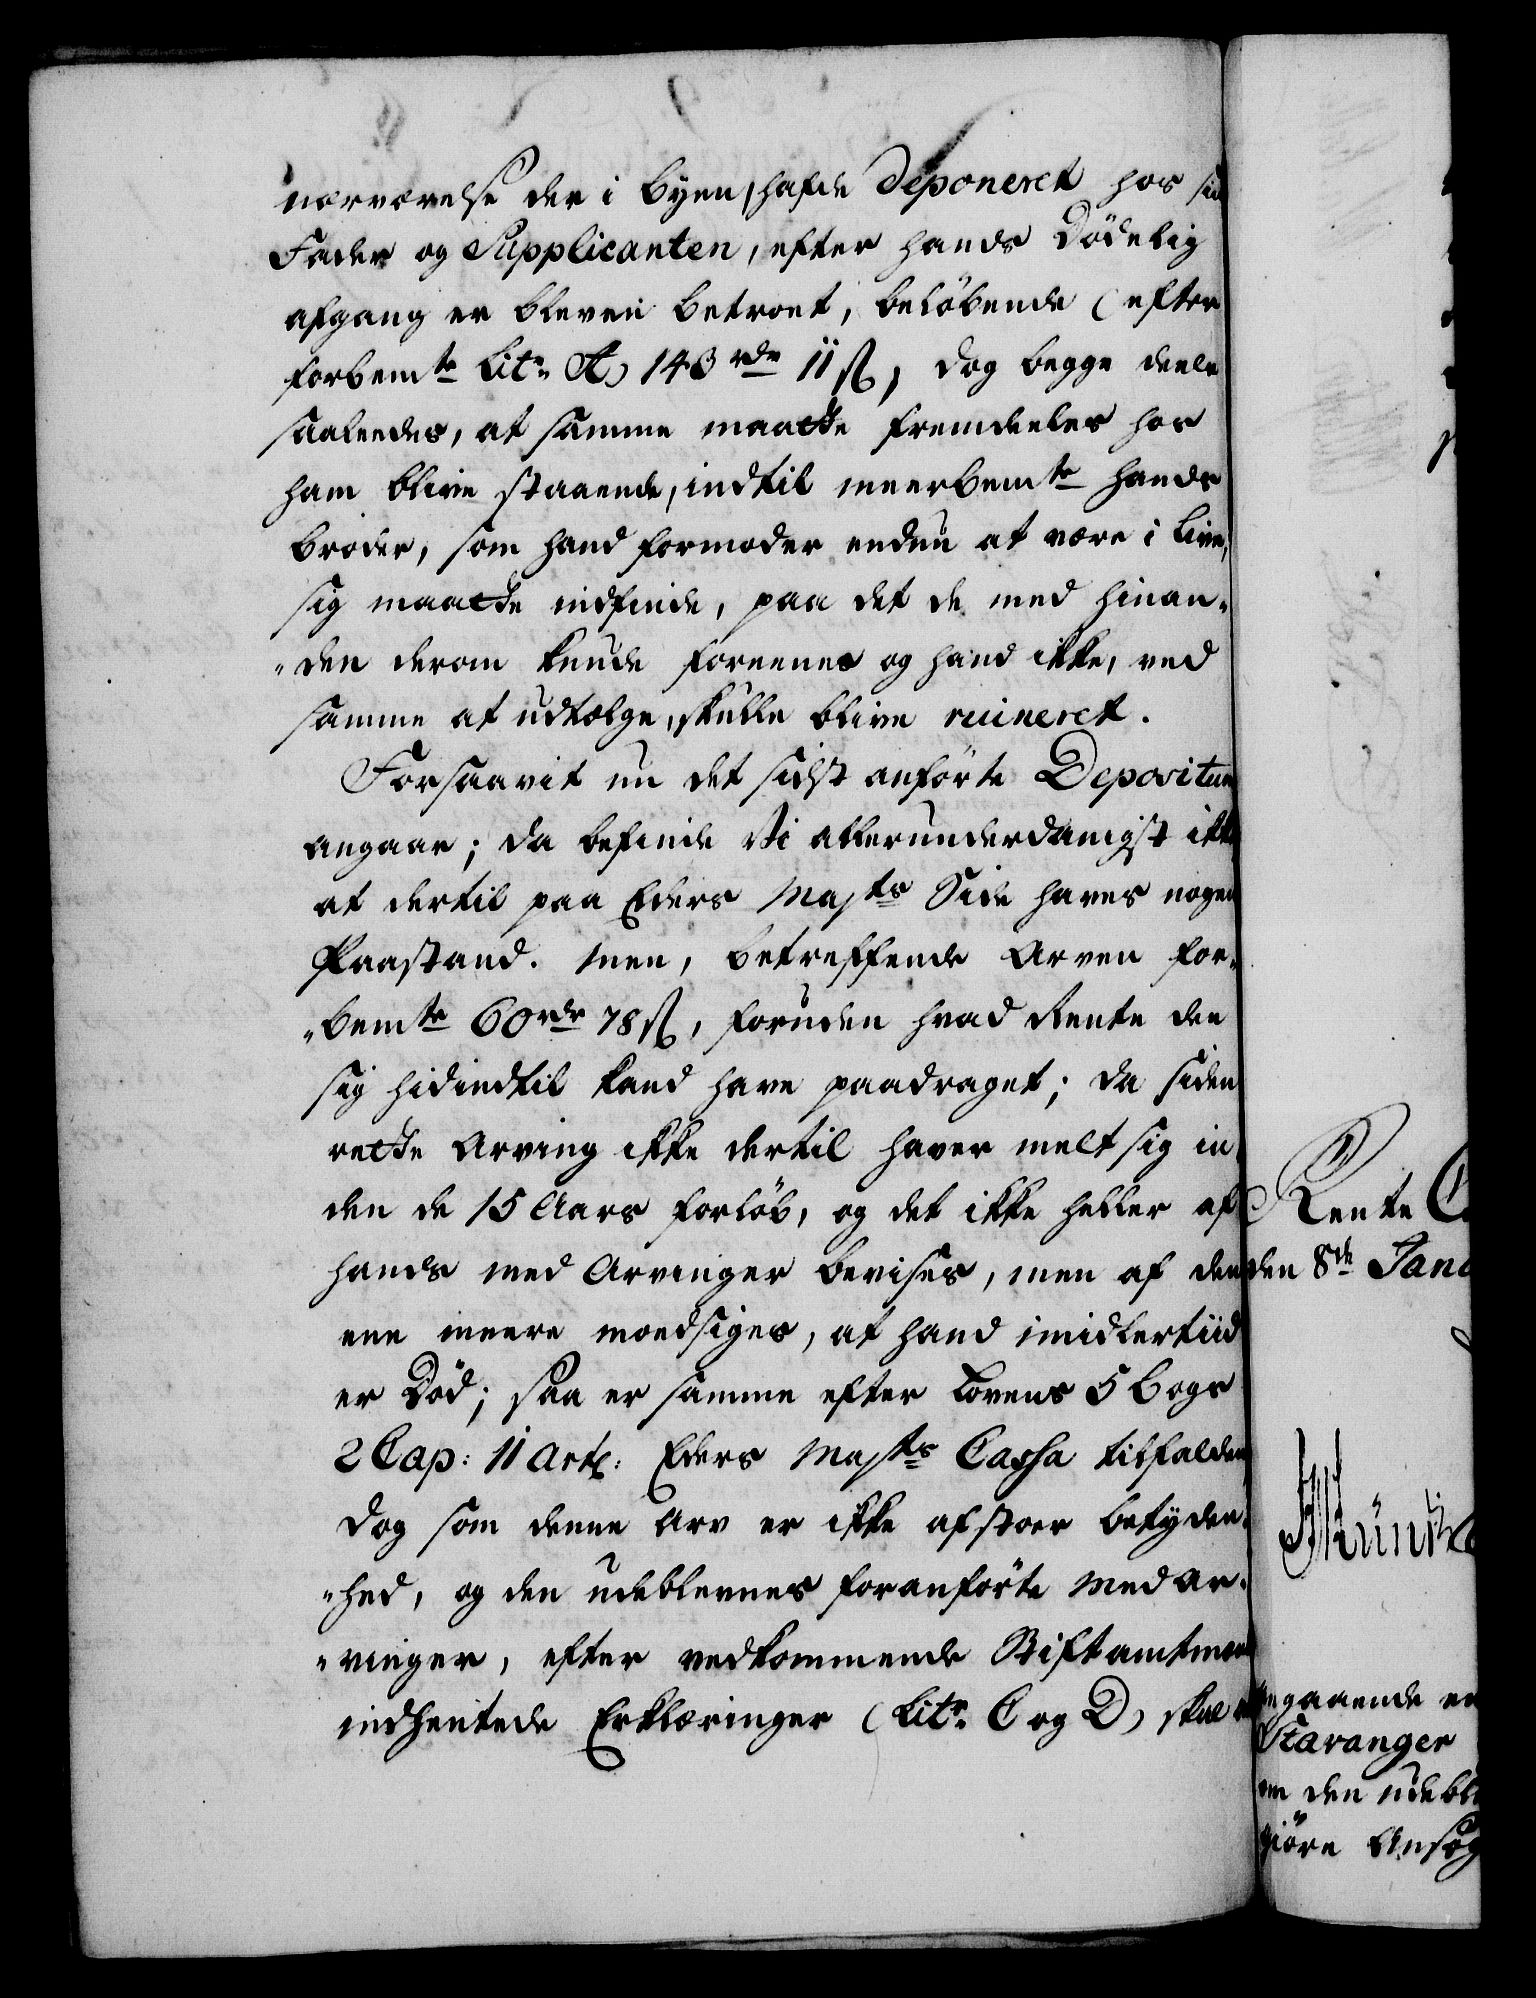 nærværelse der i Byen, hafde deponeret hos sin
Fader og Supplicanten, efter hands Dödelig
afgang er bleven betroet, beløbende (efter
forbemte Litr: A) 143 rdr 11 ß, dog begge deele
saaleedes, at samme maatte fremdeeles hos
ham blive staaende, indtil meerbemte hands
broder, som hand formoder endnu at være i Live,
sig maatte indfinde, paa det de med hinan-
-den derom kunde foreenes og hand ikke, ved
samme at udfølge, skulle blive ruineret.
Forsaavit nu det sidst anförte Depositum
angaar; da befinde Vi allerunderdanigst ikke
at dertil paa Eders Mayts Side haves nogen
Paastand. Men, betreffende Arven for-
-bemte 60 rdr 78 ß, foruden hvad Rente den
sig hidindtil kand have paadraget; da siden
rette Arving ikke dertil haver melt sig in-
den de 15 Aars forløb, og det ikke heller af
hands med Arvinger bevises, men af den
ene meere modsiges, at hand imidlertiid
er Död; saa er samme efter Lovens 5 Bogs
2 Cap: 11 Art: Eders Mayts Cassa tilfalden
Dog som denne Arv er ikke af stoer betyden-
-hed, og den udeblevnes foranförte Med Ar-
-vinger, efter vedkommende Stiftamtmænd
indhentede Erklæringer (Litr: C og D) skal
Rente
den 8de Janu
gaaende
Stavanger
den udebl
giöre Ansög